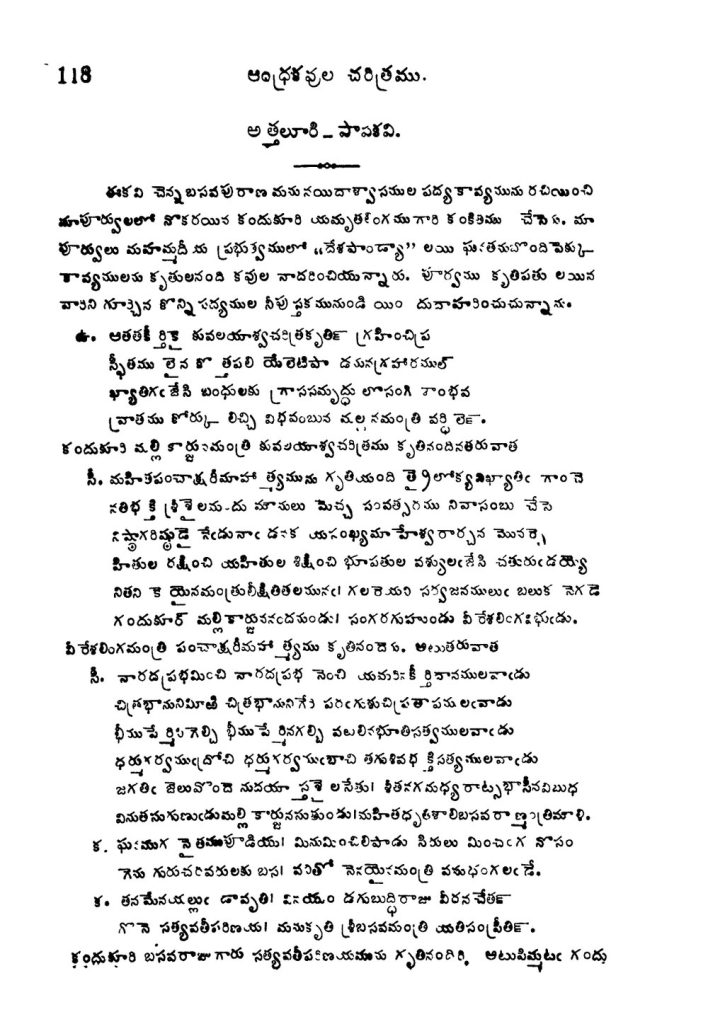 118 ఆంధ్రకవుల చరిత్రము.
అత్తలూరి - పాపకవి.
ఈకవి చెన్నబసవపురాణ మనునయిదాశ్వాసముల పద్యకావ్యమును రచియించి
మాపూర్వులలో నొకరయిన కందుకూరి యమృతలింగము గారి కంకితము చేసెను. మా
పూర్వులు మహమ్మదీయ ప్రభుత్వములో “దేశపాండ్యా” లయి ఘనతనుబొందిపెక్కు
కావ్యములను కృతులనంది కవుల నాదరించియున్నారు. పూర్వము కృతిపతు లయిన
వారిని గూర్చిన కొన్ని పద్యముల నీపుస్తకమునుండి యిం దుదాహరించుచున్నాను.
ఉ. ఆతతకీర్తికై కువలయాశ్వచరిత్రకృతిన్ గ్రహించిప్ర
స్ఫీతము లైన కొత్తపలి యేలెటిపా డమనగ్రహారముల్
ఖ్యాతిగఁజేసి బంధులకు గ్రాససమృద్ధు లొసంగి శాంభవ
వ్రాతము కోర్కు లిచ్చి విభవంబున మల్లనమంత్రి వర్ధిలెన్.
కందుకూరి మల్లికార్జునమంత్రి కువలయాశ్వచరిత్రము కృతినందినతరువాత
సీ. మహితపంచాక్షరీమాహాత్మ్యమును గృతియంది త్రైలోక్యవిఖ్యాతిఁ గాంచె
నతిభక్తి శ్రీశైలమందు మానులు మెచ్చ సంవత్సరము నివాసంబు చేసె
నిష్ఠాగరిష్ఠుడై నేఁడునాఁ డనక యసంఖ్యమాహేశ్వరార్చన మొనర్చె
హితుల రక్షించి యహితుల శిక్షించి భూపతుల వశ్యులఁజేసి చతురుఁడయ్యె
నితని కెయైనమంత్రులీక్షితితలమునఁ। గలరెయని సర్వజనములుఁ బలుక నెగడె
గందుకూర్ మల్లికార్జుననందనుండు। సంగరగుహుండు వీరేశలింగవిభుఁడు.
వీరేశలింగమంత్రి పంచాక్షరీమహాత్మ్యము కృతినందెను. ఆటుతరువాత
సీ. నారదప్రభమించి నారదప్రభ నెంచి యమరినకీర్తిదానములవాఁడు
చిత్రభానునిమీఱి చిత్రభానునిగేరి పరఁగుశుచిప్రతాపములవాడు
భీముపేర్మిగెల్చి భీముపేర్మినగల్చి వటలినభూతిసత్వములవాఁడు
ధర్మగర్వముఁద్రోచి ధర్మగర్వముఁబాచి తగుశివభక్తిసత్యములవాఁడు
జగతిఁ జెలువొందె నుదయాస్తశైలసేతు। శీతనగమధ్యరాట్సభాసీనవిబుధ
వినుతసుగుణుఁడుమల్లికార్జునసుతుండు।మహితధృతిశాలిబసవరాణ్మంత్రిమౌళి.
క. ఘనముగ నైతముపూడియు। మినుమించిలిపాడు సిరులు మించఁగ నొసం
గెను గురుచరివరులకు బస। వనితో నెనయైనమంత్రి వసుధంగలఁడే.
క. తనమేనయల్లుఁ డావృతి। వినయం డగుబుద్ధిరాజు వీరనచేతన్
గొనె సత్యవతీపరిణయ। మనుకృతి శ్రీబసవమంత్రి యతిసంప్రీతిన్.
కందుకూరి బసవరాజుగారు సత్యవతీపరిణయమును గృతినందిరి. ఆటుపిమ్మటఁ గందు